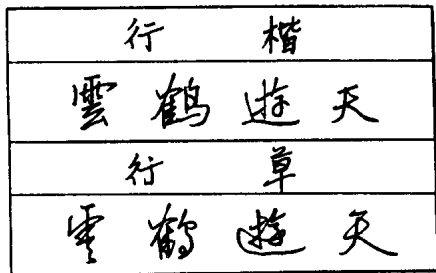 行 楷
雲 鶴 遊 天
行 草
雲 鶴 遊 天